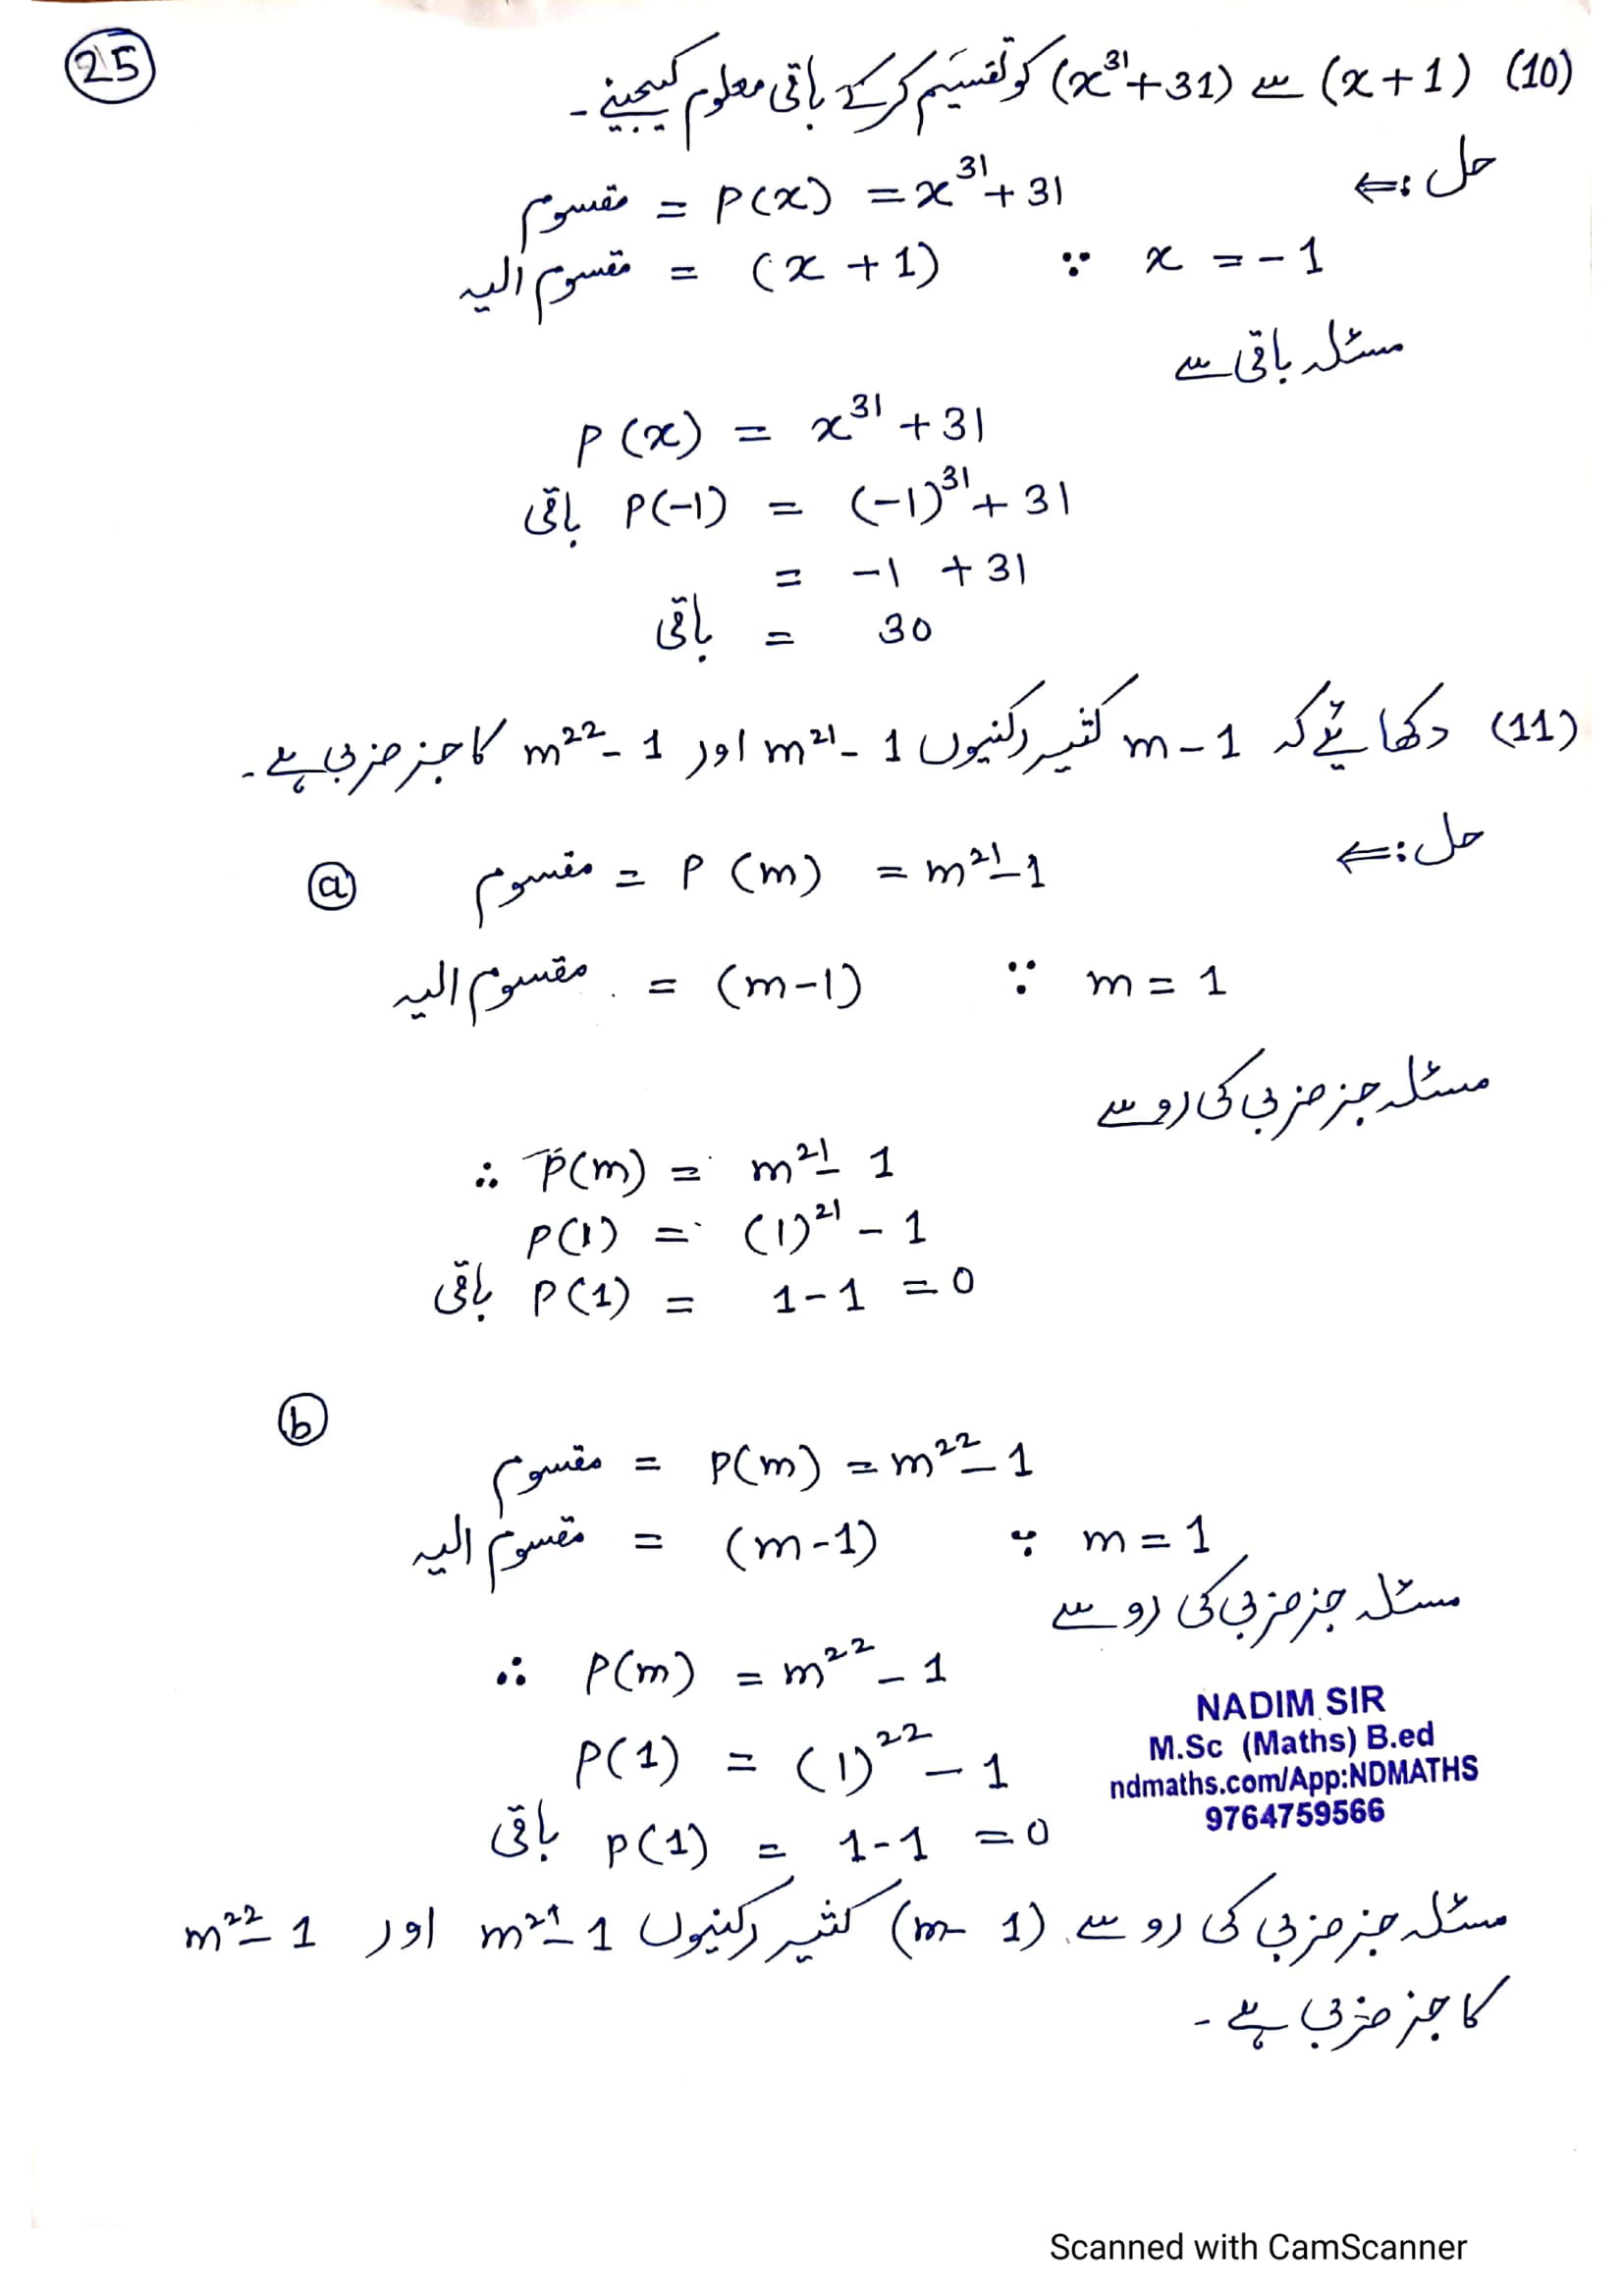 25
(10) (x+1) سے (x³¹+31) کو تقسیم کرکے باقی معلوم کیجیئے۔
حل :⇐
مقسوم = P(x) = x³¹+31
مقسوم الیہ = (x+1) ∵ x = -1
مسئلہ باقی سے
P(x) = x³¹+31
باقی P(-1) = (-1)³¹+31
= -1 +31
باقی = 30
(11) دکھائیے کہ m-1 کثیر رکنیوں m²¹-1 اور m²²-1 کا جز ضربی ہے۔
حل :⇐
ⓐ مقسوم = P(m) = m²¹-1
مقسوم الیہ = (m-1) ∵ m = 1
مسئلہ جز ضربی کی رو سے
∴ P(m) = m²¹-1
P(1) = (1)²¹-1
باقی P(1) = 1-1 =0
ⓑ
مقسوم = P(m) = m²²-1
مقسوم الیہ = (m-1) ∵ m = 1
مسئلہ جز ضربی کی رو سے
∴ P(m) = m²²-1
P(1) = (1)²²-1
باقی P(1) = 1-1 =0
NADIM SIR
M.Sc (Maths) B.ed
ndmaths.com/App:NDMATHS
9764759566
مسئلہ جز ضربی کی رو سے (m-1) کثیر رکنیوں m²¹-1 اور m²²-1
کا جز ضربی ہے۔
Scanned with CamScanner